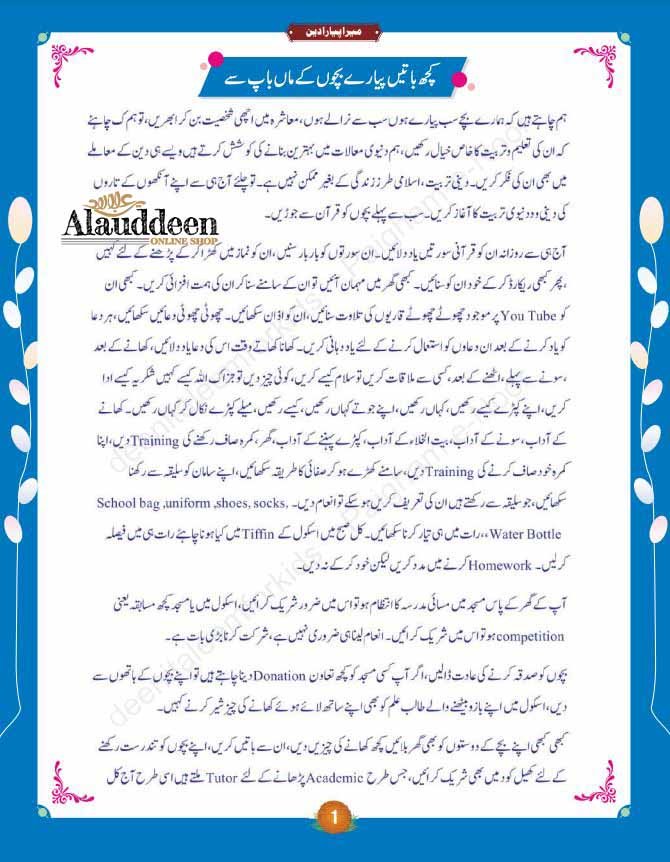 میرا پیارا دین
کچھ باتیں پیارے بچوں کے ماں باپ سے
ہم چاہتے ہیں کہ ہمارے بچے سب پیارے ہوں سب سے نرالے ہوں، معاشرہ میں اچھی شخصیت بن کر ابھریں، تو ہم کو چاہئے
کہ ان کی تعلیم و تربیت کا خاص خیال رکھیں، ہم دنیوی معالات میں بہترین بنانے کی کوشش کرتے ہیں ویسے ہی دین کے معاملے
میں بھی ان کی فکر کریں۔ دینی تربیت، اسلامی طرز زندگی کے بغیر ممکن نہیں ہے۔ تو چلئے آج ہی سے اپنے آنکھوں کے تاروں
کی دینی و دنیوی تربیت کا آغاز کریں۔ سب سے پہلے بچوں کو قرآن سے جوڑیں۔
Alauddeen
ONLINE SHOP
آج ہی سے روزانہ ان کو قرآنی سورتیں یاد دلائیں۔ ان سورتوں کو بار بار سنیں، ان کو نماز میں کھڑا کر کے پڑھنے کے لئے کہیں
،پھر کبھی ریکارڈ کر کے خود ان کو سنائیں۔ کبھی گھر میں مہمان آئیں تو ان کے سامنے سنا کر ان کی ہمت افزائی کریں۔ کبھی ان
کو You Tube پر موجود چھوٹے چھوٹے قاریوں کی تلاوت سنائیں، ان کو اذان سکھائیں۔ چھوٹی چھوٹی دعائیں سکھائیں، ہر دعا
کو یاد کرنے کے بعد ان دعاوں کو استعمال کرنے کے لئے یاد دہانی کریں۔ کھانا کھاتے وقت اس کی دعا یاد دلائیں، کھانے کے بعد
،سونے سے پہلے، اٹھنے کے بعد، کسی سے ملاقات کریں تو سلام کیسے کریں، کوئی چیز دیں تو جزاک اللہ کیسے کہیں شکریہ کیسے ادا
کریں، اپنے کپڑے کیسے رکھیں، کہاں رکھیں، اپنے جوتے کہاں رکھیں، کیسے رکھیں، میلے کپڑے نکال کر کہاں رکھیں۔ کھانے
کے آداب، سونے کے آداب، بیت الخلاء کے آداب، کپڑے پہننے کے آداب، گھر، کمرہ صاف رکھنے کی Training دیں، اپنا
کمرہ خود صاف کرنے کی Training دیں، سامنے کھڑے ہو کر صفائی کا طریقہ سکھائیں، اپنے سامان کو سلیقہ سے رکھنا
سکھائیں، جو سلیقہ سے رکھتے ہیں ان کی تعریف کریں ہو سکے تو انعام دیں۔ School bag ,uniform ,shoes, socks,
Water Bottle،، رات میں ہی تیار کرنا سکھائیں۔ کل صبح میں اسکول کے Tiffin میں کیا ہونا چاہئے رات ہی میں فیصلہ
کرلیں۔ Homework کرنے میں مدد کریں لیکن خود کر کے نہ دیں۔
آپ کے گھر کے پاس مسجد میں مسائی مدرسہ کا انتظام ہو تو اس میں ضرور شریک کرائیں، اسکول میں یا مسجد کچھ مسابقہ یعنی
competition ہو تو اس میں شریک کرائیں۔ انعام لینا ہی ضروری نہیں ہے، شرکت کرنا بڑی بات ہے۔
بچوں کو صدقہ کرنے کی عادت ڈالیں، اگر آپ کسی مسجد کو کچھ تعاون Donation دینا چاہتے ہیں تو اپنے بچوں کے ہاتھوں سے
دیں، اسکول میں اپنے بازو بیٹھنے والے طالب علم کو بھی اپنے ساتھ لائے ہوئے کھانے کی چیز شیر کرنے کہیں۔
کبھی کبھی اپنے بچے کے دوستوں کو بھی گھر بلائیں کچھ کھانے کی چیزیں دیں، ان سے باتیں کریں، اپنے بچوں کو تندرست رکھنے
کے لئے کھیل کود میں بھی شریک کرائیں، جس طرح Academic پڑھانے کے لئے Tutor ملتے ہیں اسی طرح آج کل
1